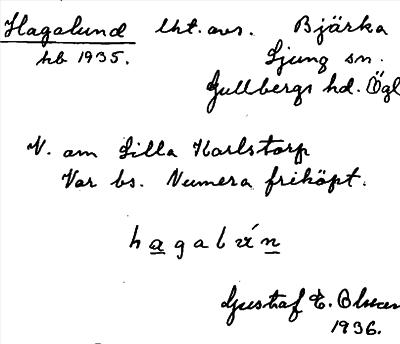 Hagalund lht. avs. Bjärka
hb 1935. Ljung sn.
Gullbergs hd. Ögl
V. om Lilla Karlstorp
Var bs. Numera friköpt.
Gustaf E.
1936.